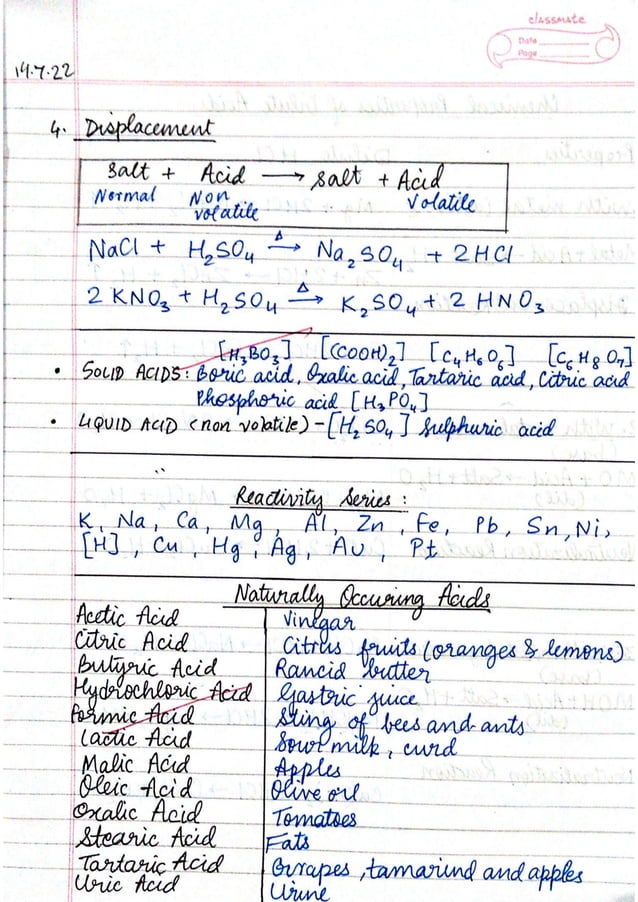 classmate
Date
Page
14.7.22
4. Displacement
Salt + Acid → Salt + Acid
Normal Non volatile Volatile
NaCl + H₂SO₄ —Δ→ Na₂SO₄ + 2HCl
2 KNO₃ + H₂SO₄ —Δ→ K₂SO₄ + 2 HNO₃
[H₃BO₃] [(COOH)₂] [C₄H₆O₆] [C₆H₈O₇]
• SOLID ACIDS: Boric acid, Oxalic acid, Tartaric acid, Citric acid
Phosphoric acid [H₃PO₄]
• LIQUID ACID (non volatile) - [H₂SO₄] Sulphuric acid
Reactivity Series :
K, Na, Ca, Mg, Al, Zn, Fe, Pb, Sn, Ni,
[H], Cu, Hg, Ag, Au, Pt
Naturally Occuring Acids
Acetic Acid Vinegar
Citric Acid Citrus fruits (oranges & lemons)
Butyric Acid Rancid butter
Hydrochloric Acid Gastric juice
Formic Acid Sting of bees and ants
Lactic Acid Sour milk, curd
Malic Acid Apples
Oleic Acid Olive oil
Oxalic Acid Tomatoes
Stearic Acid Fats
Tartaric Acid Grapes, tamarind and apples
Uric Acid Urine